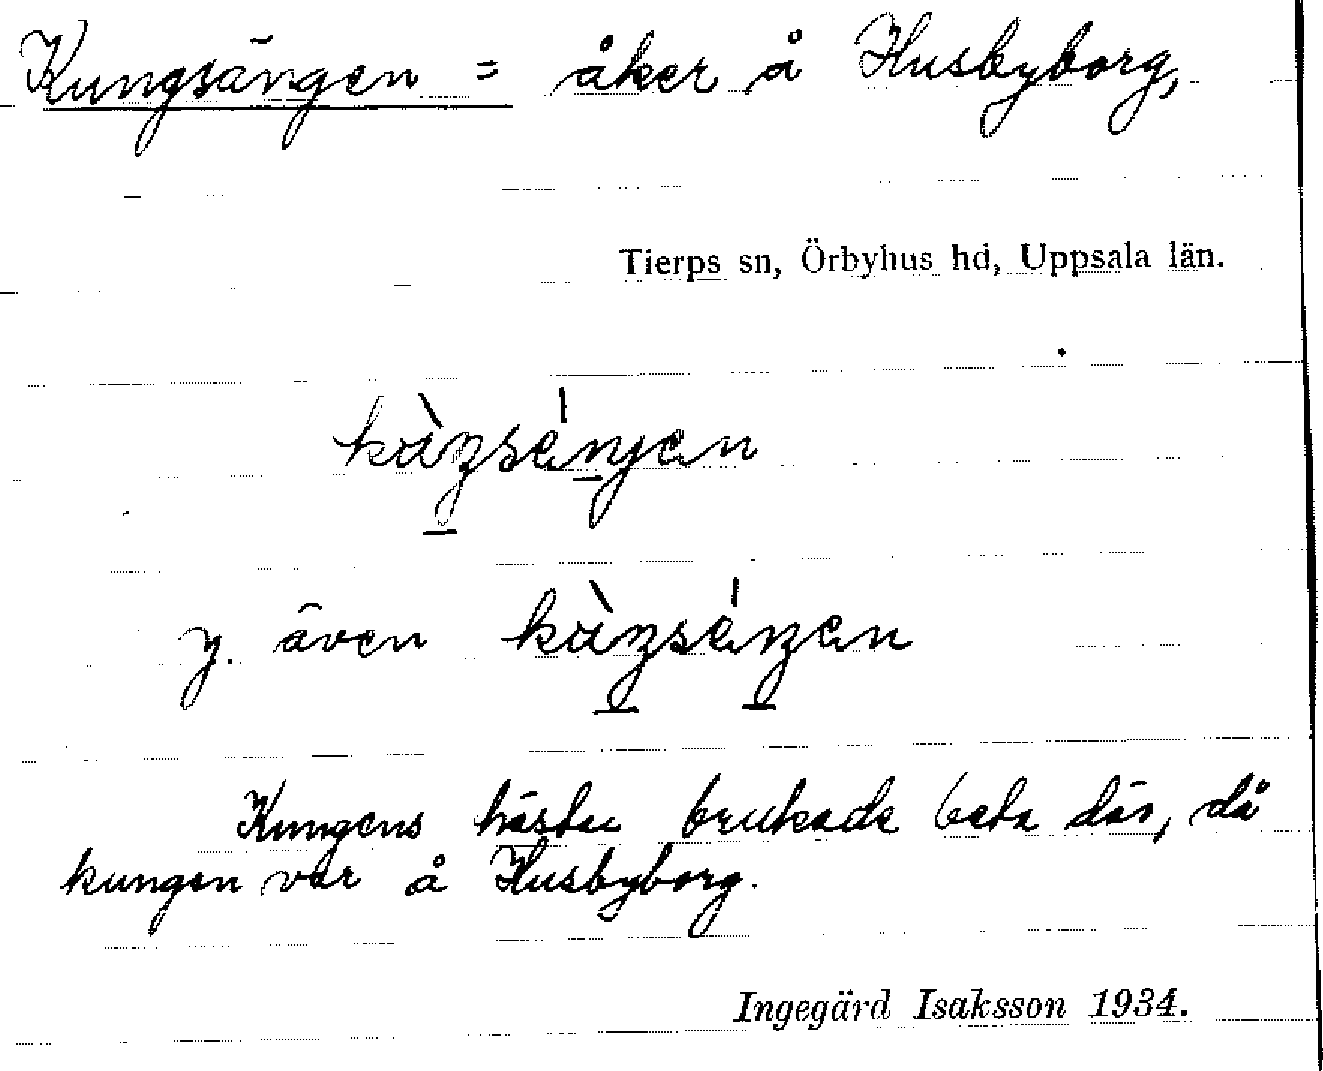 Kungsängen = åker å Husbyborg,
Tierps sn, Örbyhus hd, Uppsala län.
y. även
Kungens hästar brukade beta där, då
kungen var å Husbyborg.
Ingegärd Isaksson 1934.